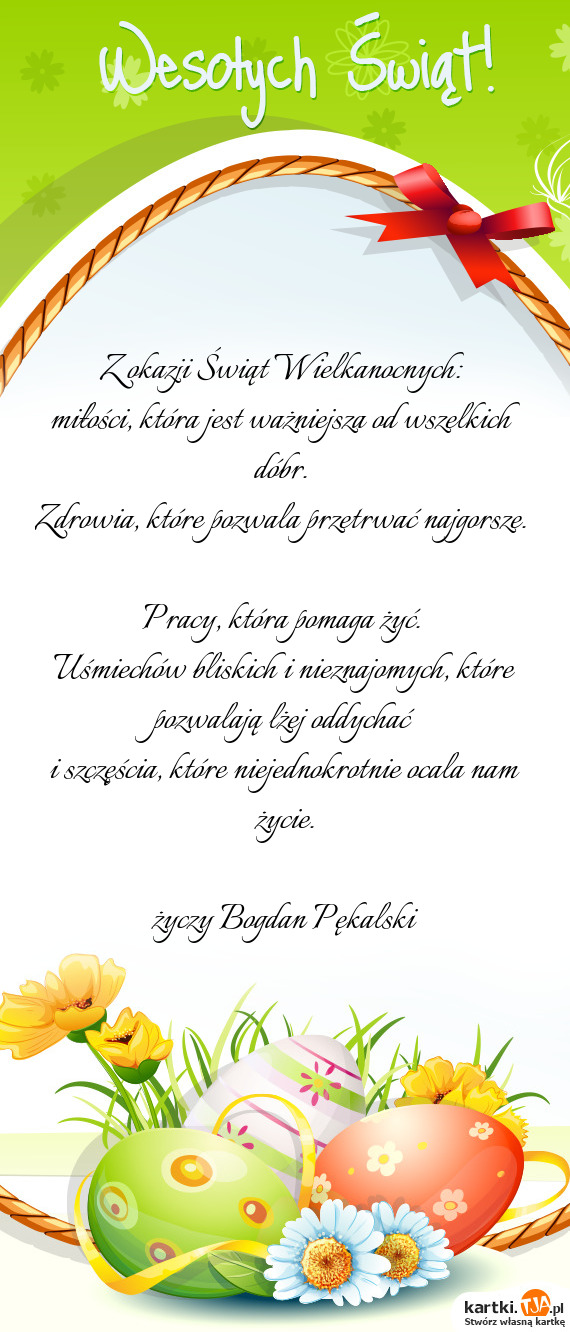 Wesołych Świąt!
Z okazji Świąt Wielkanocnych:
miłości, która jest ważniejsza od wszelkich
dóbr.
Zdrowia, które pozwala przetrwać najgorsze.
Pracy, która pomaga żyć.
Uśmiechów bliskich i nieznajomych, które
pozwalają lżej oddychać
i szczęścia, które niejednokrotnie ocala nam
życie.
życzy Bogdan Pękalski
kartki.TJA.pl
Stwórz własną kartkę